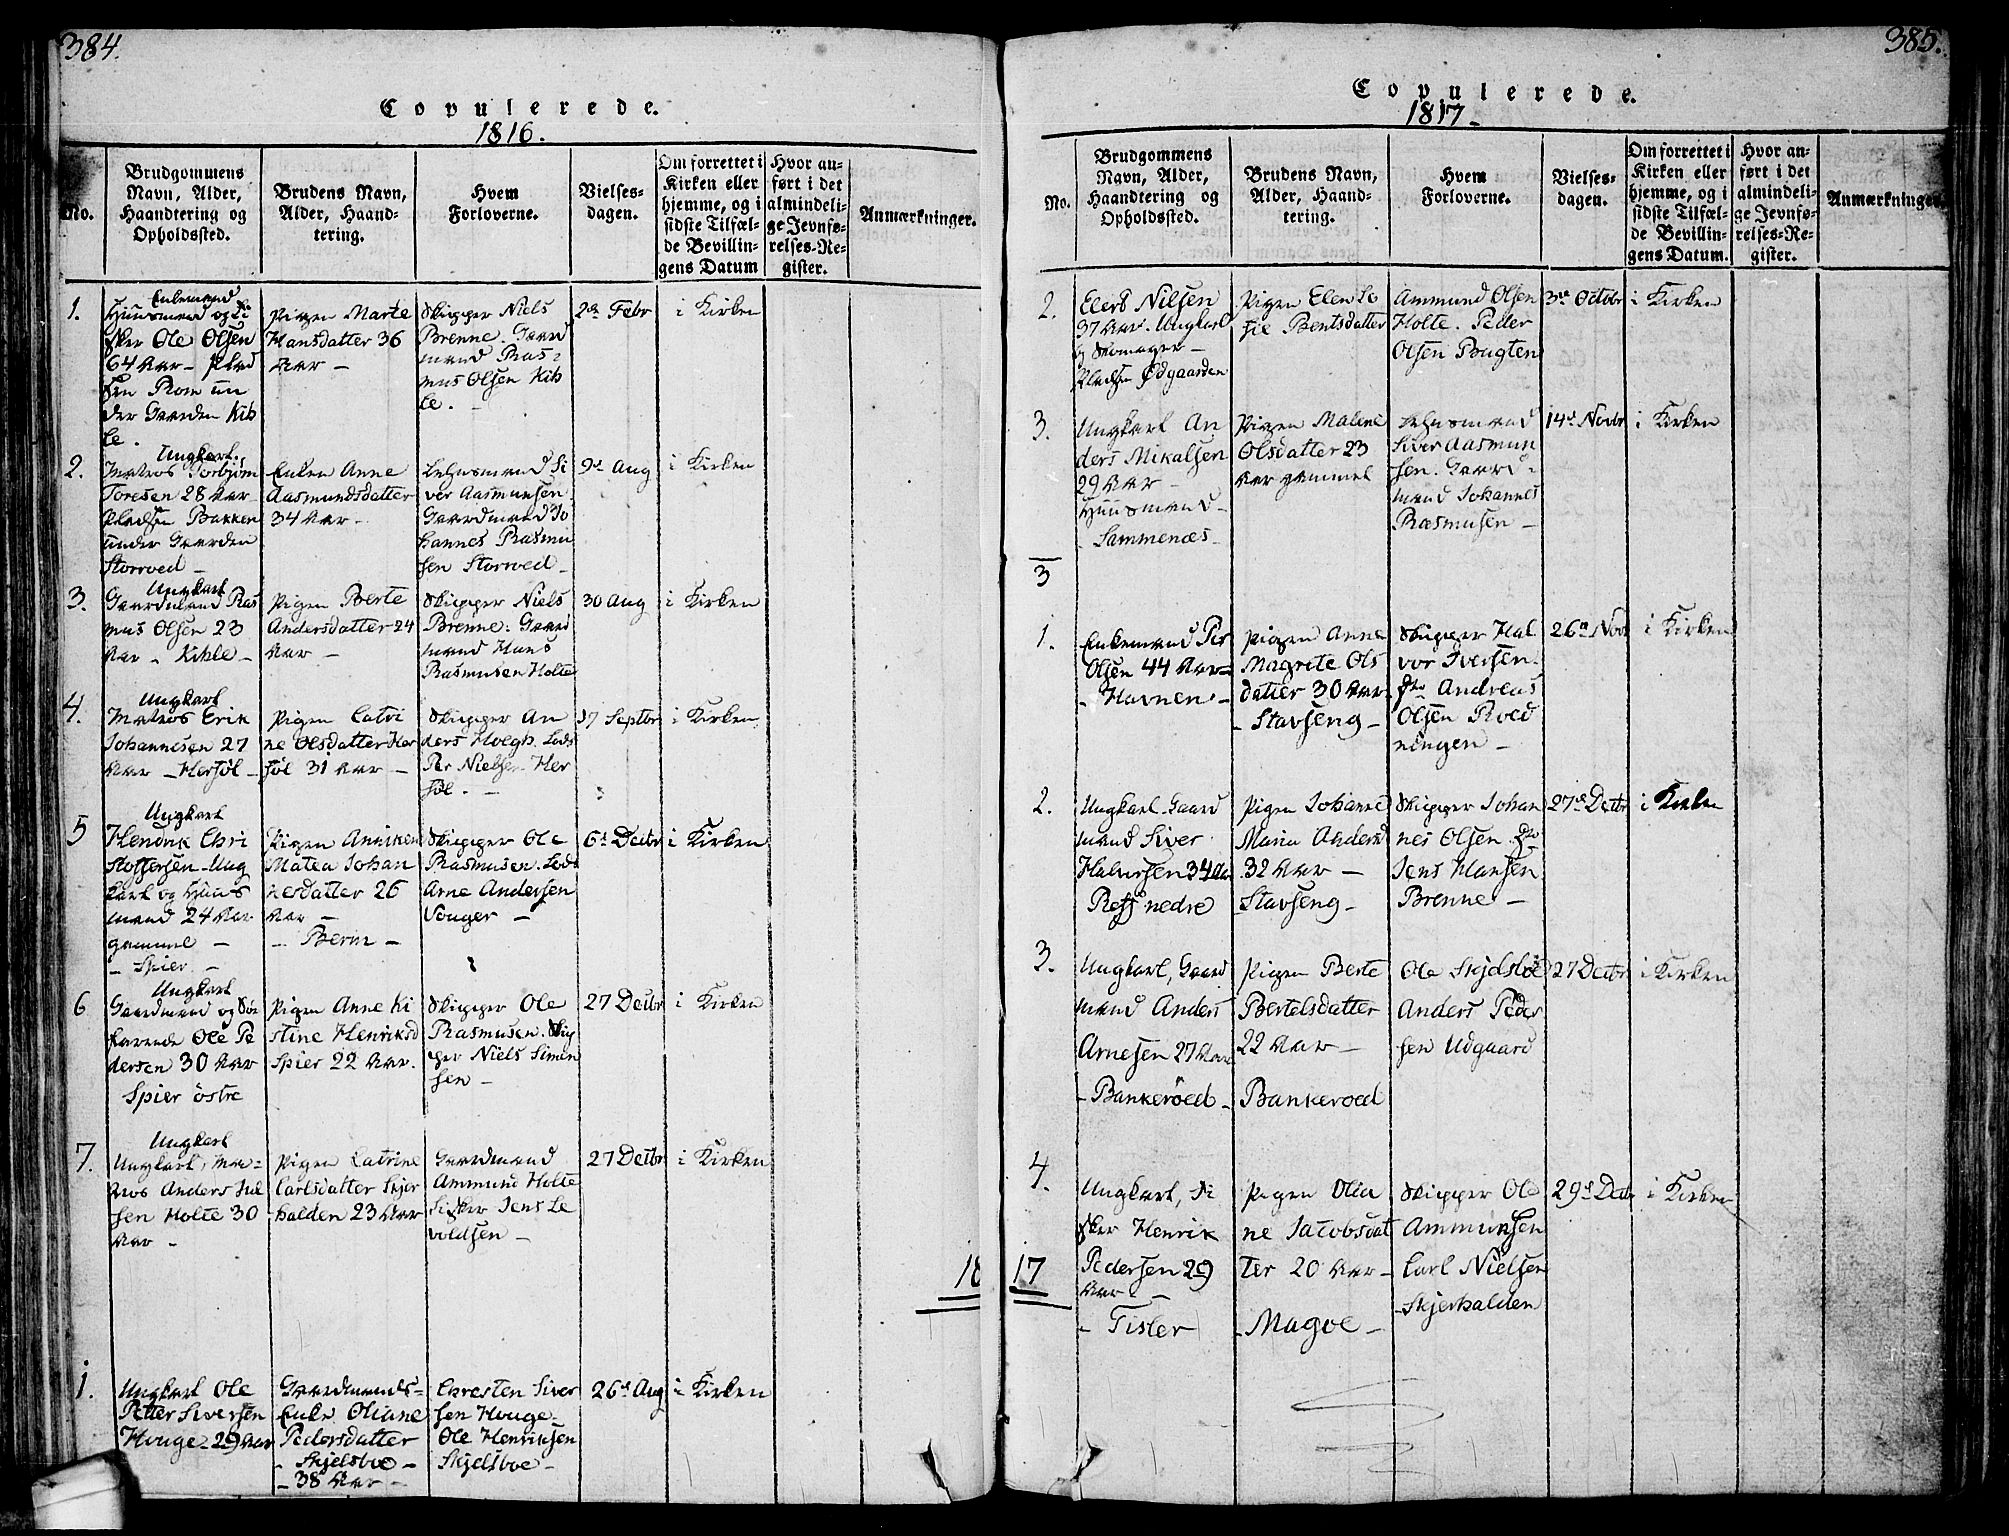 384.
Copulerede.
1816.
No.
Brudgommens
Navn, Alder,
Haandtering og
Opholdssted.
Brudens Navn,
Alder, Haand-
tering.
Hvem
Forloverne.
Vielses-
dagen.
Om forrettet i
Kirken eller
hjemme, og i
sidste Tilfæl-
de Bevillin-
gens Datum
Hvor an-
ført i det
almindeli-
ge Jevnfø-
relses-Re-
gister.
Anmærkninger.
1.
Enkemand
Huusmand og Fi
sker Ole Olsen
64 Aar – Plad
sen Rom un
der Gaarden Kih
le.
Pigen Marte
Hansdatter 36
Aar –
Skipper Niels
Brenne. Gaard
mand Ras=
mus Olsen Kih
le. –
2den Febr
i Kirken
2.
Ungkarl,
Matros Torbjørn
Toresen 28 Aar
Pladsen Bakken
under Gaarden
Storrøed –
Enken Anne
Aasmundsdatter
34 Aar –
Lehnsmand Si
ver Aasmunsen
Gaardmand Jo
hannes Rasmu
sen Storroed –
9de Aug
i Kirken
3.
Ungkarl
Gaardmand Ras
mus Olsen 23
Aar – Kihle –
Pigen Berte
Andersdatter 24
Aar –
Skipper Niels
Brenne. Gaard
mand Hans
Rasmusen Holte
30 Aug
i Kirken
4.
Ungkarl
Matros Erik
Johannesen 27
Aar – Hersøl –
Pigen Catri
ne Olsdatter Her
søl 31 Aar –
Skipper An
ders Hoegh. Lods
Per Nielsen Her
søl. –
17 Septbr
i Kirken
5
Ungkarl
Hendrik Chri
stoffersen – Ung
karl og Huus
mand 24 Aar
gammel –
– Spier –
Pigen Anniken
Matea Johan
nesdatter 26
Aar –
– Berin –
Skipper Ole
Rasmusen. Lods
Arne Andersen
Vouger –
6te Decbr
i Kirken
6
Ungkarl
Gaardmand og Søe
farende Ole Pe
dersen 30 Aar
Spier østre
Pigen Anne Ki
stine Henriksd
Spier 22 Aar.
Skipper Ole
Rasmusen. Skip
per Niels Simen
sen –
27 Decbr
i Kirken
7.
Ungkarl
Ungkarl, Ma=
tros Anders Juel
sen Holte 30
Aar –
Pigen Catrine
Carlsdatter Skjer
halden 23 Aar
Gaardmand
Ammund Holte
Fisker Jens Le
voldsen –
27 Decbr
i Kirken
18
1.
Ungkarl Ole
Petter Siversen
Houge – 29 Aar
Gaardmands=
Enke Oliane
Pedersdatter
– Skjelsboe –
– 38 Aar –
Chresten Siver
sen Houge –
Ole Henriksen
Skjelsboe –
26de Aug
i Kirken
385.
Copulerede.
1817 –
No.
Brudgommens
Navn, Alder,
Haandtering og
Opholdssted.
Brudens Navn,
Alder, Haand-
tering.
Hvem
Forloverne.
Vielses-
dagen.
Om forrettet i
Kirken eller
hjemme, og i
sidste Tilfæl-
de Bevillin-
gens Datum.
Hvor an-
ført i det
almindeli-
ge Jevnfø-
relses-Re-
gister.
Anmærkninger
2.
Elert Nilsen
37 Aar. Ungkarl
og Skomager –
Pladsen Ødgaarden
Pigen Elen So
fie Bentsdatter
Ammund Olsen
Holte. Peder
Olsen Bugten
3die Octobr
i Kirken
3.
Ungkarl An
ders Mikalsen
29 Aar –
Huusmand –
– Sammenæs –
Pigen Malene
Olsdatter 23
Aar gammel
Lehnsmand
Siver Aasmun
sen. Gaard=
mand Johannes
Rasmusen –
14de Novbr
i Kirken
3
1.
Enkemand Per
Olsen 44 Aar –
– Havnen –
Pigen Anne
Magrete Ols
datter 30 Aar
– Stavseng –
Skipper Hal
vor Iversen.
Dto Andreas
Olsen Roed
ningen –
26de Novb
i Kirken
2.
Ungkarl. Gaard
mand Siver
Halvorsen 34 Aar
Reff nedre
Pigen Johanne
Maria Andersd
32 Aar –
– Stavseng –
Skipper Johan
nes Olsen Dto
Jens Hansen
Brenne –
27de Decbr
i Kirken
3.
Ungkarl, Gaard
mand Anders
Arnesen 27 Aar
– Bankerøed –
Pigen Berte
Bertelsdatter
22 Aar –
Bankeroed
Ole Skjelsboe
Anders Peder
sen Udgaard
27 Decbr
i Kirken
4.
Ungkarl, Fi
sker Henrik
Pedersen 29
Aar –
– Tisler
Pigen Olea
ne Jacobsdat
ter 20 Aar –
– Magoe –
Skipper Ole
Ammunsen
Carl Nielsen
– Skjerhalden
29de Decbr
i Kirken
17